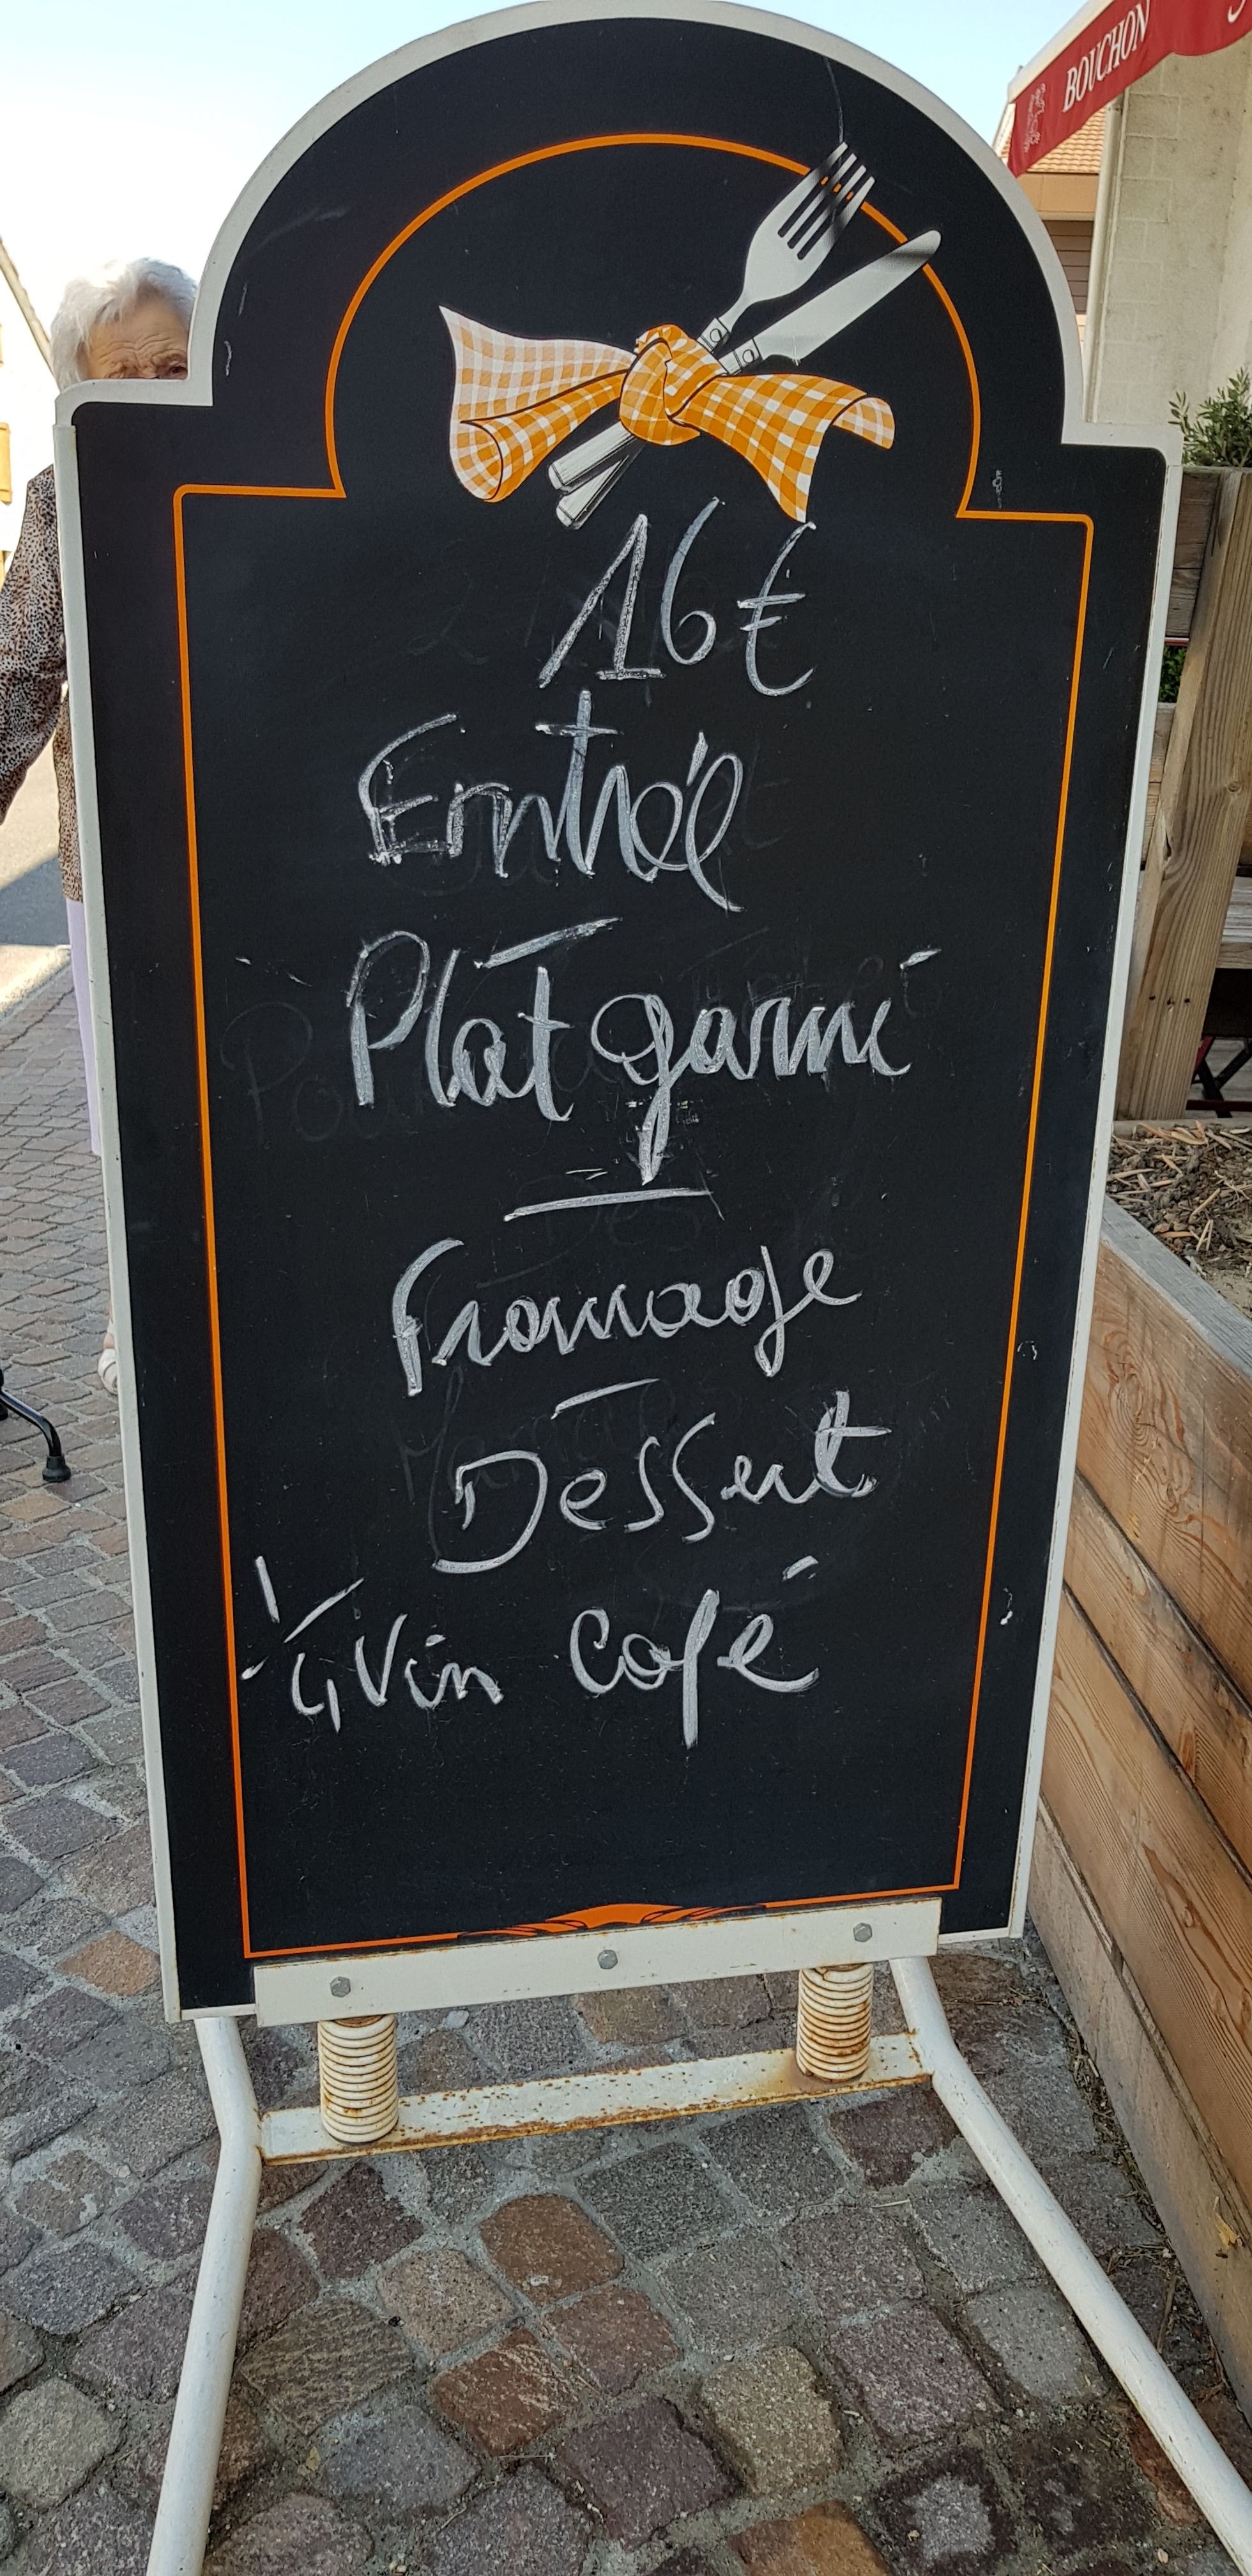 BOUCHON
16€
Entrée
Plat garni
Fromage
Dessert
1/4 Vin Café